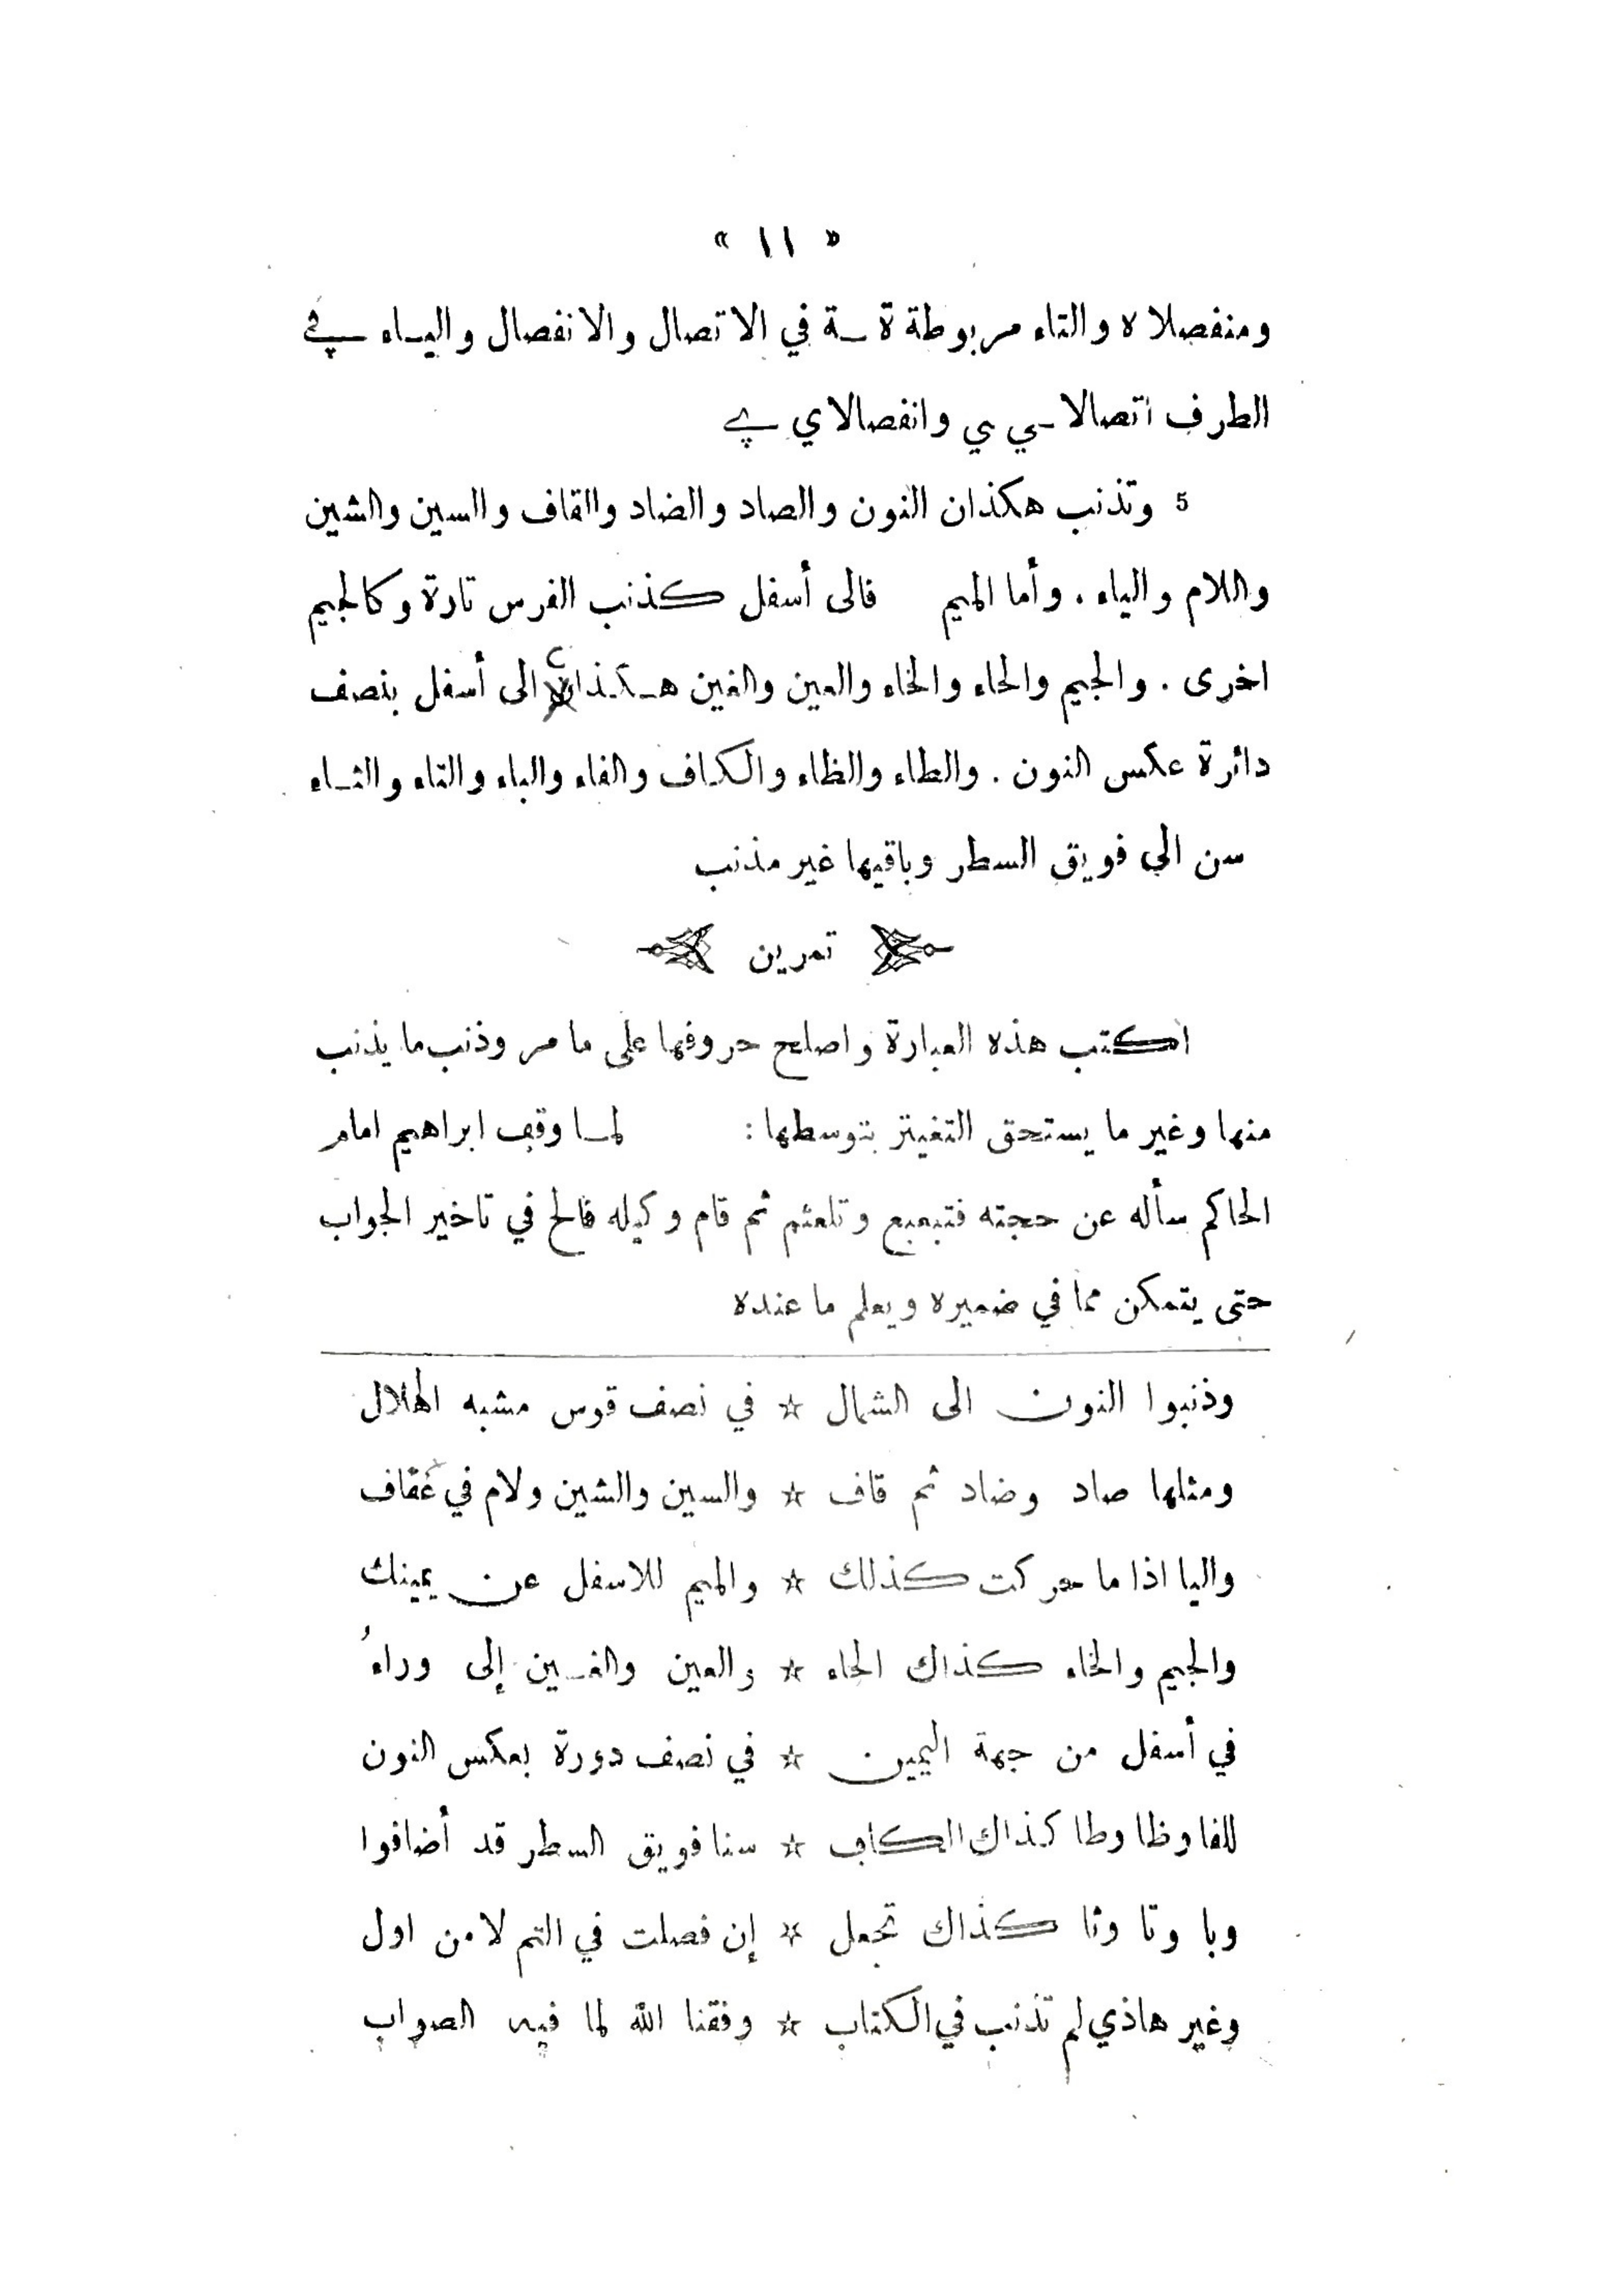 « ١١ »
ومنفصلا ه والتاء مربوطة ة ـة في الاتصال والانفصال واليـاء في
الطرف اتصالا ـي ي وانفصالا ي ے
5 وتذنب هكذا ن النون والصاد والضاد والقاف والسين والشين
واللام والياء . وأما الميم فالى أسفل كذنب الفرس تارة وكالجيم
اخرى . والجيم والحاء والخاء والعين والغين هـكـذا الى أسفل بنصف
دائرة عكس النون . والطاء والظاء والكاف والفاء والباء والتاء والثـاء
سن الى فويق السطر وباقيها غير مذنب
تمرين
اكتب هذه العبارة واصلح حروفها على ما مر وذنب ما يذنب
منها وغير ما يستحق التغيتر بتوسطها : لمـا وقف ابراهيم امام
الحاكم سأله عن حجته فتبعبع وتلعثم ثم قام وكيله فالح في تاخير الجواب
حتى يتمكن مما في ضميره ويعلم ما عنده
وذنبوا النون الى الشمال ☆ في نصف قوس مشبه الهلال
ومثلها صاد وضاد ثم قاف ☆ والسين والشين ولام في عقاف
واليا اذا ما حركت كذلك ☆ والميم للاسفل عن يمينك
والجيم والخاء كذاك الحاء ☆ والعين والغـين إلى وراءُ
في أسفل من جهة اليمين ☆ في نصف دورة بعكس النون
للفا وظا وطا كذاك الكاف ☆ سنا فويق السطر قد أضافوا
وبا وتا وثا كذاك تجعل ☆ إن فصلت في التم لا من اول
وغير هاذي لم تذنب في الكتاب ☆ وفقنا الله لما فيه الصواب